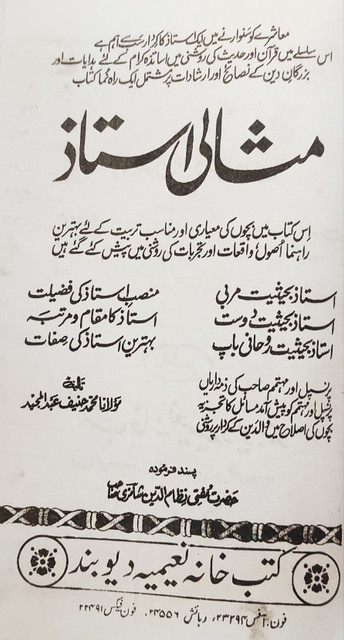 معاشرے کو سنوارنے میں ایک استاذ کا کردار سب سے اہم ہے
اس سلسلے میں قرآن اور حدیث کی روشنی میں اساتذہ کرام کے لئے ہدایات اور
بزرگانِ دین کے نصائح اور ارشادات پر مشتمل ایک راہ نما کتاب
مثالی استاذ
اس کتاب میں بچوں کی معیاری اور مناسب تربیت کے لئے بہترین
راہنما اصول واقعات اور تجربات کی روشنی میں پیش کئے گئے ہیں
استاذ بحیثیت مربی
استاذ بحیثیت دوست
استاذ بحیثیت روحانی باپ
منصبِ استاذ کی فضیلت
استاذ کا مقام و مرتبہ
بہترین استاذ کی صفات
پرنسپل اور مہتمم صاحب کی ذمہ داریاں
پرنسپل اور مہتمم کو پیش آمدہ مسائل کا تجزیہ
بچوں کی اصلاح میں والدین کے کردار پر روشنی
تالیف
مولانا محمد حنیف عبدالمجید
پسند فرمودہ
حضرت مفتی نظام الدین شامزی صاحب
کتب خانہ نعیمیہ دیوبند
فون: آفس ۲۳۲۹۴، رہائش ۲۴۵۵۶، فون فیکس ۲۲۴۹۱